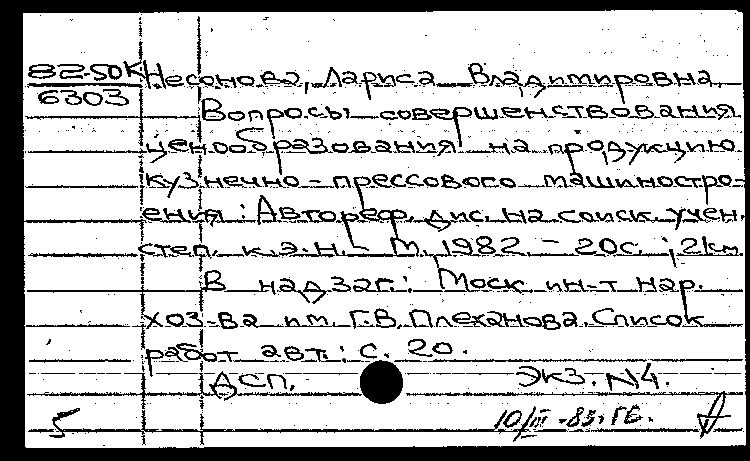 82-50К Несонова, Лариса Владимировна.
6303
Вопросы совершенствования
ценообразования на продукцию
кузнечно-прессового машиностро-
ения: Автореф. дис. на соиск. учен.
степ. к.э.н. - М. 1982. - 20с. ; 2км
В надзаг.: Моск ин-т нар.
хоз-ва им. Г.В. Плеханова. Список
работ авт.: с. 20.
ДСП. Экз. N4.
5 10/III-83. ГБ.